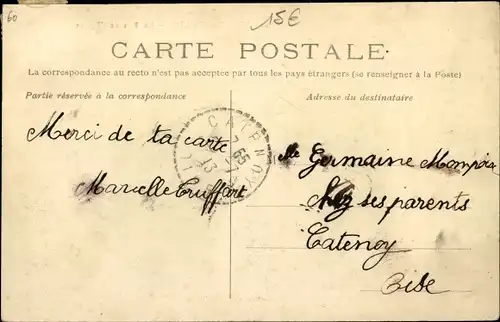 60
15€
CARTE POSTALE
La correspondance au recto n'est pas acceptée par tous les pays étrangers (se renseigner à la Poste)
Partie réservée à la correspondance
Adresse du destinataire
Merci de ta carte
Marcelle Truffart
Germaine
ses parents
Catenoy
Oise